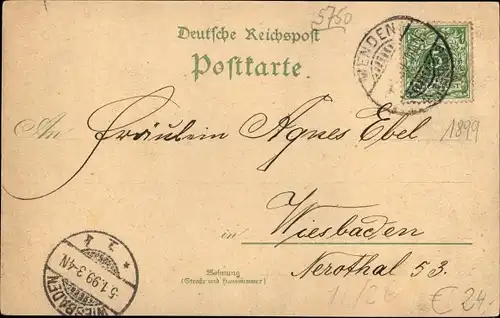 5750
Deutsche Reichspost
Postkarte.
MENDEN
An Fräulein Agnes Ebel
1899
in Wiesbaden
Wohnung
(Straße und Hausnummer)
Nerothal 53.
WIESBADEN
5.1.99.3-4N
€ 24.